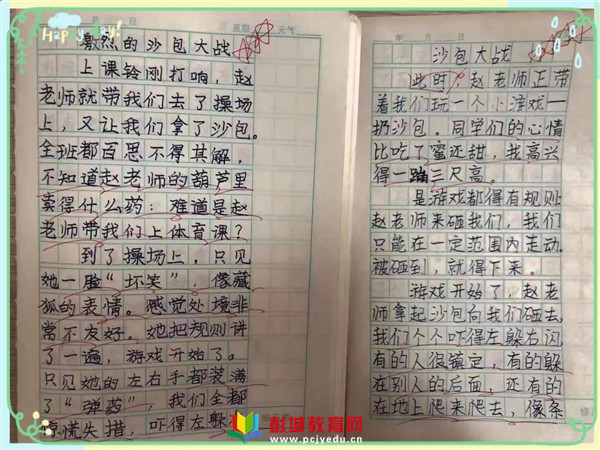 Happy day!
日
星期
天气
激烈的沙包大战
上课铃刚打响，赵
老师就带我们去了操场
上，又让我们拿了沙包。
全班都百思不得其解，
不知道赵老师的葫芦里
卖得什么药：难道是赵
老师带我们上体育课？
到了操场上，只见
她一脸“坏笑”，像藏
狐的表情。感觉处境非
常不友好。她把规则讲
了一遍，游戏开始了。
只见她的左右手都装满
了“弹药”，我们全都
惊慌失措，吓得左躲
年 月 日
沙包大战
此时，赵老师正带
着我们玩一个小游戏一
扔沙包。同学们的心情
比吃了蜜还甜，我高兴
得一蹦三尺高。
是游戏都得有规则
赵老师来砸我们，我们
只能在一定范围内走动。
被砸到，就得下来。
游戏开始了，赵老
师拿起沙包向我们砸去。
我们个个吓得左躲右闪
有的人很镇定，有的躲
在别人的后面，还有的
在地上爬来爬去，像条
彭城教育网
www.pcjyedu.cn